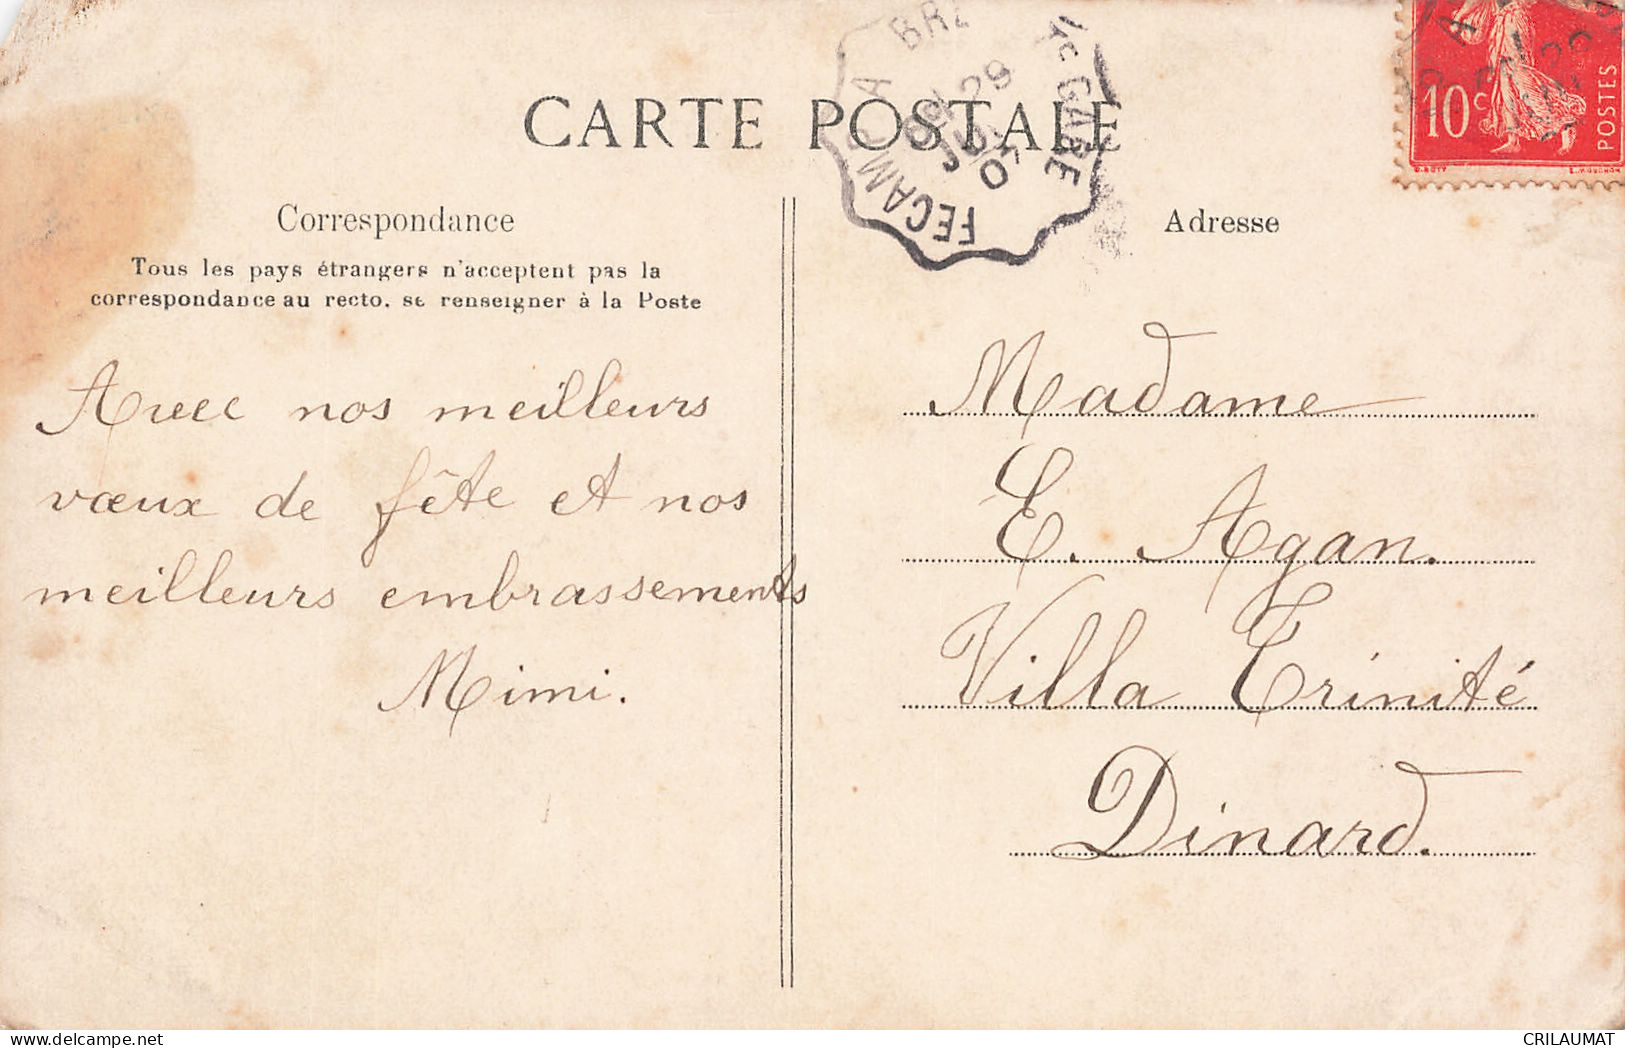 CARTE POSTALE
FECAMP A BRE
GARE
29
10c
POSTES
Correspondance
Tous les pays étrangers n'acceptent pas la
correspondance au recto, se renseigner à la Poste
Avec nos meilleurs
vœux de fête et nos
meilleurs embrassements
Mimi.
Adresse
Madame
E. Agan.
Villa Trinité
Dinard.
CRILAUMAT